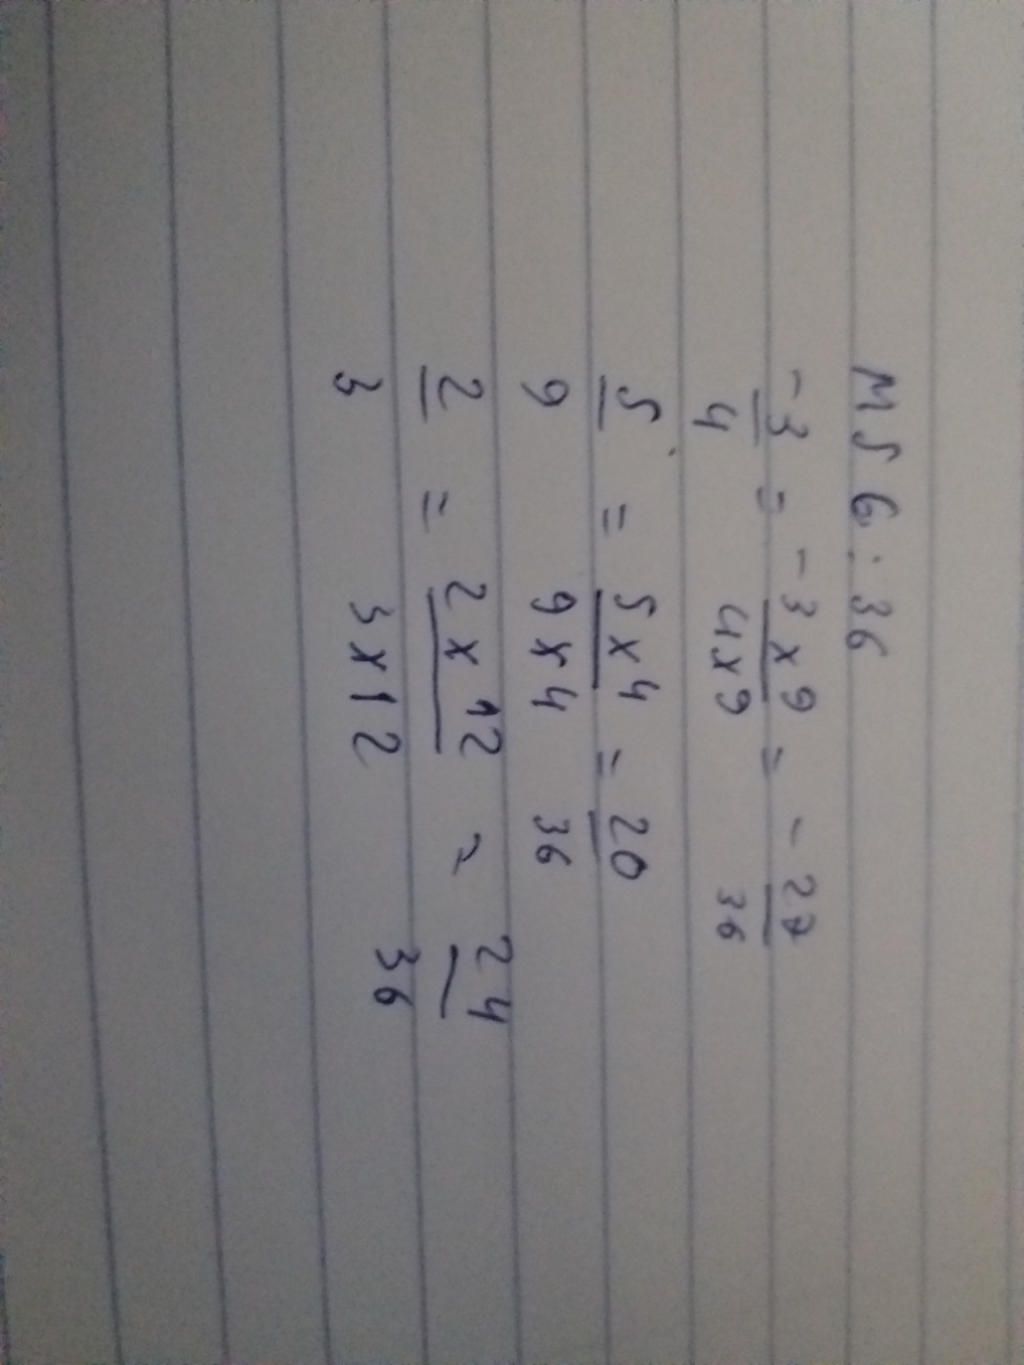 MSC: 36
-3/4 = -3x9/4x9 = -27/36
5/9 = 5x4/9x4 = 20/36
2/3 = 2x12/3x12 = 24/36